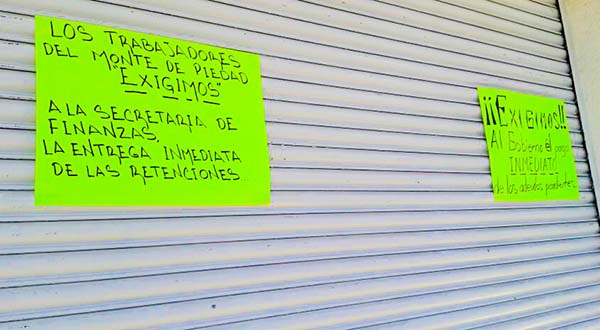 LOS TRABAJADORES
DEL MONTE DE PIEDAD
"EXIGIMOS"
A LA SECRETARIA DE
FINANZAS,
LA ENTREGA INMEDIATA
DE LAS RETENCIONES
¡¡Exigimos!!
Al Gobierno el pago
INMEDIATO
de los adeudos pendientes